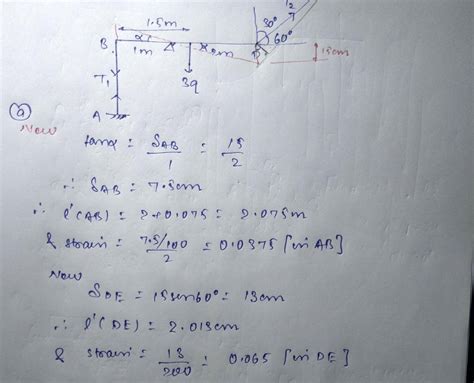 1.5m
30°
T2
B
α
1m
2m
D
60°
15cm
T1
3q
A
(a)
Now
tanα = δAB/1 = 15/2
∴ δAB = 7.5cm
∴ l'(AB) = 2+0.075 = 2.075m
& strain = 7.5/100/2 = 0.0375 [in AB]
Now
δDE = 15sin60° = 13cm
∴ l'(DE) = 2.013cm
& strain = 13/200 = 0.065 [in DE]